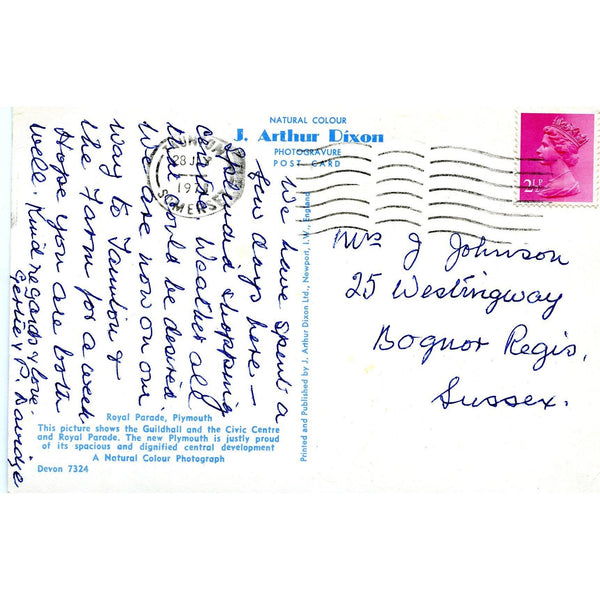 NATURAL COLOUR
J. Arthur Dixon
PHOTOGRAVURE
POST CARD
We have spent a
few days here –
Splendid shopping
centre Weather all
that could be desired
We are now on our
way to Taunton &
the Farm for a week.
Hope you are both
well. Kind regards & love.
Gertie & P.
TAUNTON
28
197
SOMERSET
2½P
Mrs J Johnson
25 Westingway
Bognor Regis,
Sussex.
Printed and Published by J. Arthur Dixon Ltd., Newport, I.W., England
Royal Parade, Plymouth
This picture shows the Guildhall and the Civic Centre
and Royal Parade. The new Plymouth is justly proud
of its spacious and dignified central development
A Natural Colour Photograph
Devon 7324